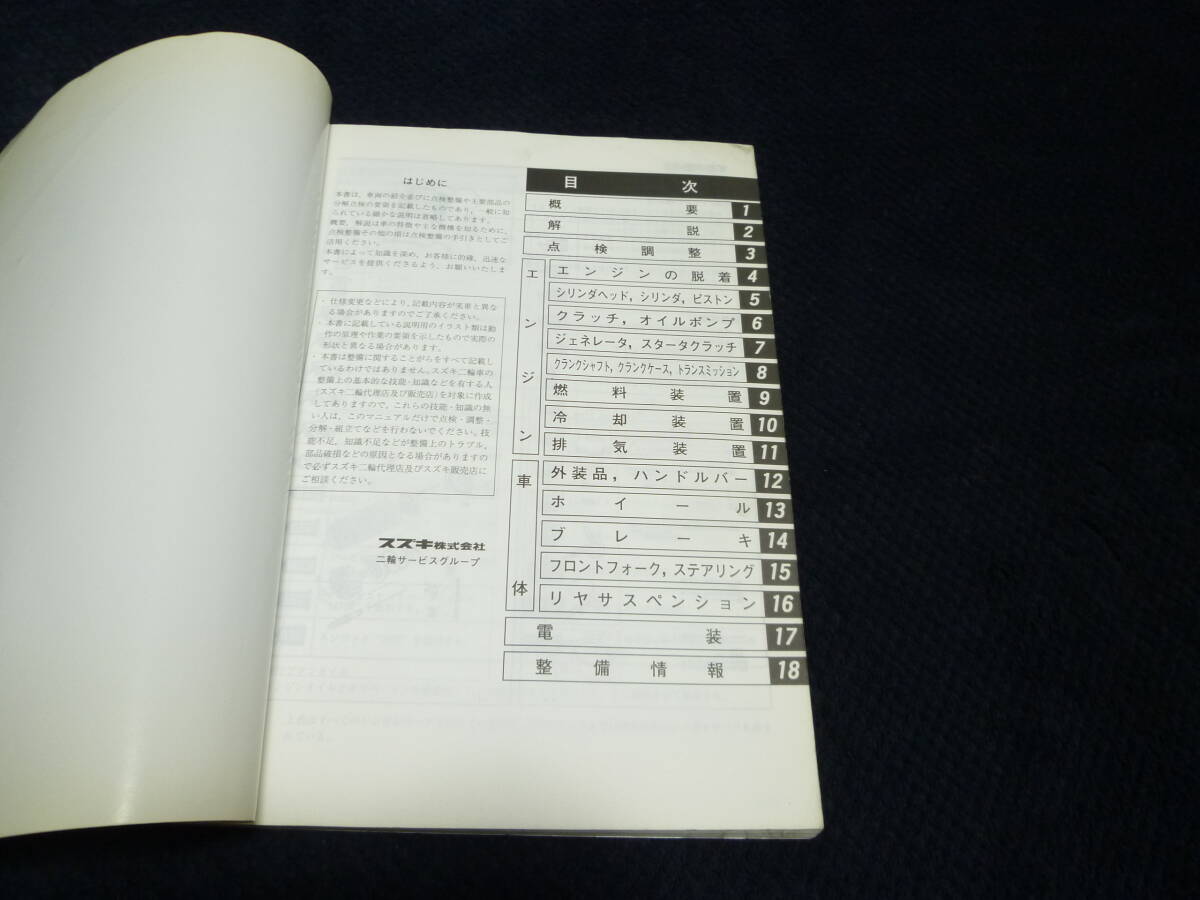 はじめに
本書は、車両の紹介並びに点検整備や主要部品の
分解点検の要領を記載したものであり、一般に知
られている細かな説明は省略してあります。
概要、解説は車の特徴や主な機構を知るために、
点検整備その他の項は点検整備の手引きとしてご
活用ください。
本書によって知識を深め、お客様に的確、迅速な
サービスを提供くださるよう、お願いいたしま
す。
・仕様変更などにより、記載内容が実車と異な
る場合がありますのでご了承ください。
・本書に記載している説明用のイラスト類は動
作の原理や作業の要領を示したもので実際の
形状と異なる場合があります。
・本書は整備に関することがらをすべて記載し
ているわけではありません。スズキ二輪車の
整備上の基本的な技能・知識などを有する人
(スズキ二輪代理店及び販売店)を対象に作成
してありますので、これらの技能・知識の無
い人は、このマニュアルだけで点検・調整・
分解・組立てなどを行わないでください。技
能不足、知識不足などが整備上のトラブル、
部品破損などの原因となる場合がありますの
で必ずスズキ二輪代理店及びスズキ販売店に
ご相談ください。
スズキ株式会社
二輪サービスグループ
目次
概要 1
解説 2
点検調整 3
エンジン
エンジンの脱着 4
シリンダヘッド, シリンダ, ピストン 5
クラッチ, オイルポンプ 6
ジェネレータ, スタータクラッチ 7
クランクシャフト, クランクケース, トランスミッション 8
燃料装置 9
冷却装置 10
排気装置 11
車体
外装品, ハンドルバー 12
ホイール 13
ブレーキ 14
フロントフォーク, ステアリング 15
リヤサスペンション 16
電装 17
整備情報 18